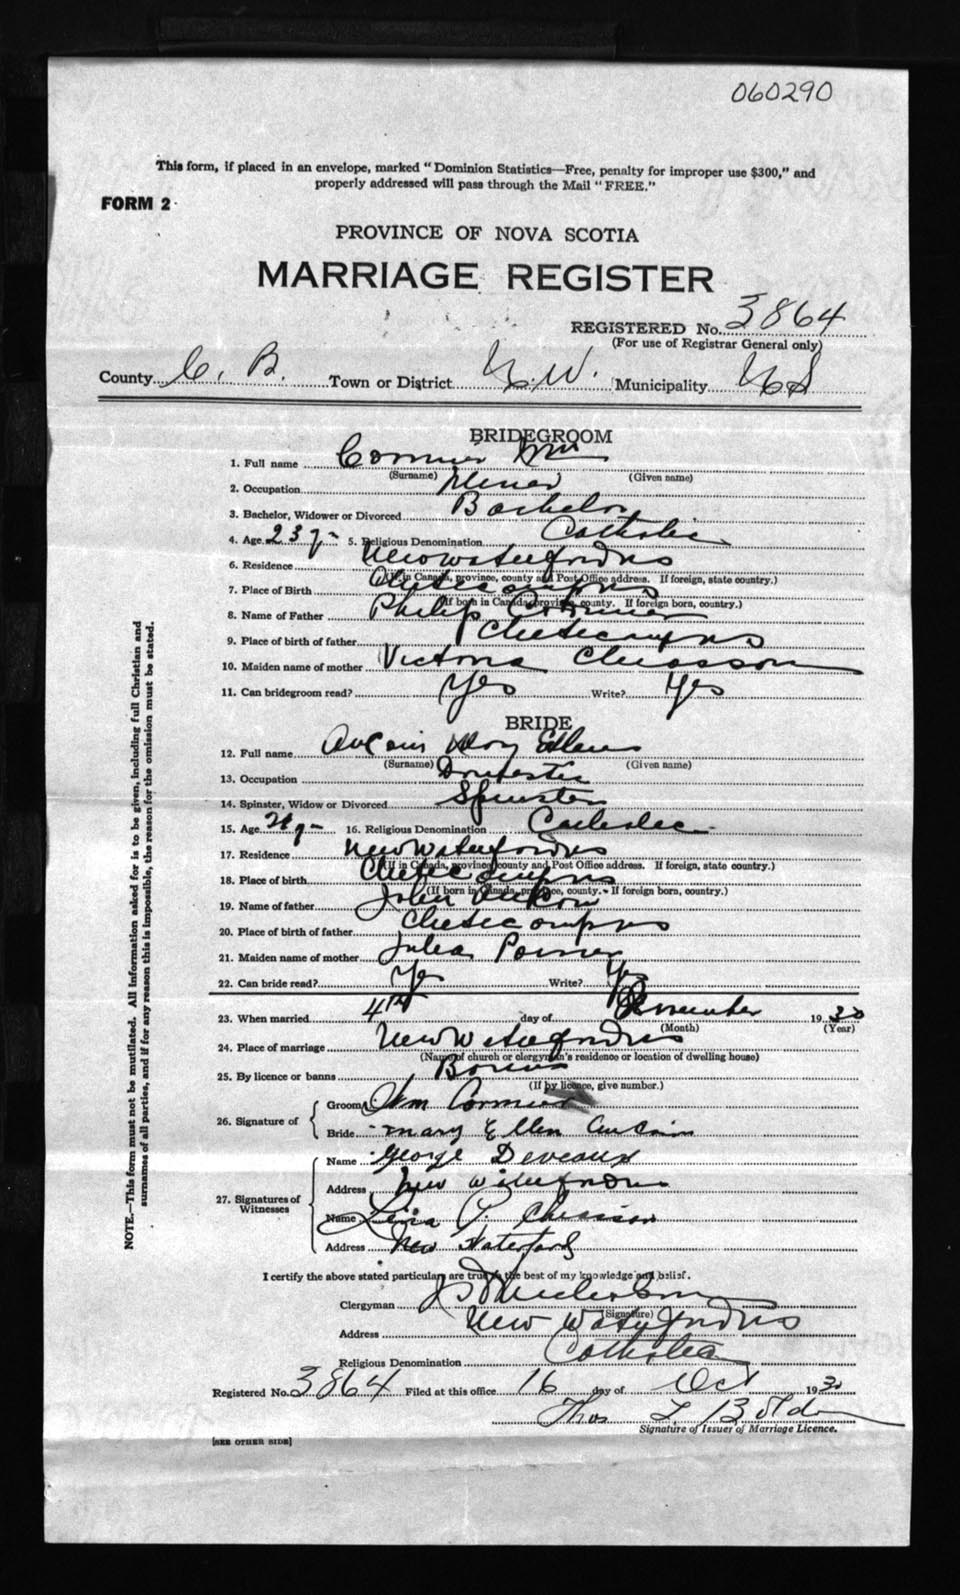 060290
This form, if placed in an envelope, marked "Dominion Statistics—Free, penalty for improper use $300," and
properly addressed will pass through the Mail "FREE."
FORM 2
PROVINCE OF NOVA SCOTIA
MARRIAGE REGISTER
REGISTERED No. 3864
(For use of Registrar General only)
County C. B. Town or District N. W. Municipality NS
BRIDEGROOM
1. Full name Cormier Wm
(Surname) (Given name)
2. Occupation Miner
3. Bachelor, Widower or Divorced Bachelor
4. Age 23 y 5. Religious Denomination Catholic
6. Residence New Waterford NS
(If in Canada, province, county and Post Office address. If foreign, state country.)
7. Place of Birth Cheticamp NS
(If born in Canada, province, county. If foreign born, country.)
8. Name of Father Philip Cormier
9. Place of birth of father Cheticamp NS
10. Maiden name of mother Victoria Chiasson
11. Can bridegroom read? Yes Write? Yes
BRIDE
12. Full name AuCoin Mary Ellen
(Surname) (Given name)
13. Occupation Domestic
14. Spinster, Widow or Divorced Spinster
15. Age 16. Religious Denomination Catholic
17. Residence New Waterford NS
(If in Canada, province, county and Post Office address. If foreign, state country.)
18. Place of birth Cheticamp NS
(If born in Canada, province, county. If foreign born, country.)
19. Name of father John AuCoin
20. Place of birth of father Cheticamp NS
21. Maiden name of mother Julia
22. Can bride read? Yes Write? Yes
23. When married 4th day of 1930
(Month) (Year)
24. Place of marriage New Waterford NS
(Name of church or clergyman's residence or location of dwelling house)
25. By licence or banns Banns
(If by licence, give number.)
26. Signature of
Groom Wm Cormier
Bride mary Ellen AuCoin
27. Signatures of Witnesses
Name George Deveaux
Address New Waterford
Name Lena P. Chiasson
Address New Waterford
I certify the above stated particulars are true to the best of my knowledge and belief.
Clergyman
(Signature)
Address New Waterford NS
Religious Denomination Catholic
Registered No. 3864 Filed at this office 16 day of Oct 1930
Thos L
Signature of Issuer of Marriage Licence.
[SEE OTHER SIDE]
NOTE.—This form must not be mutilated. All information asked for is to be given, including full Christian and
surnames of all parties, and if for any reason this is impossible, the reason for the omission must be stated.